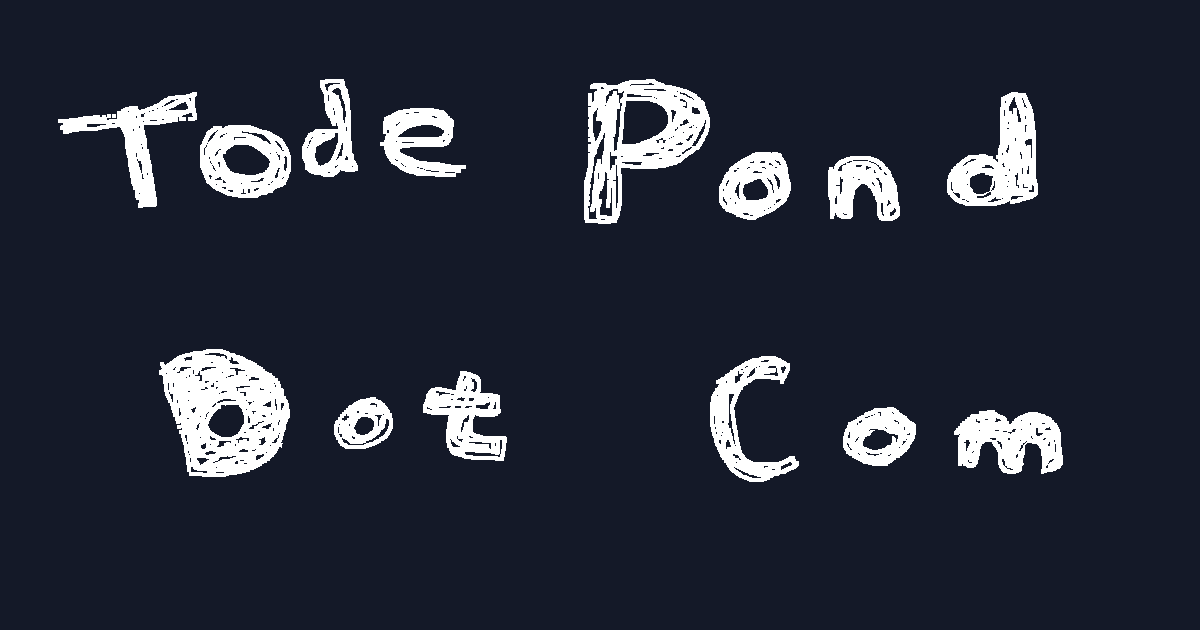 Tode Pond
Dot Com